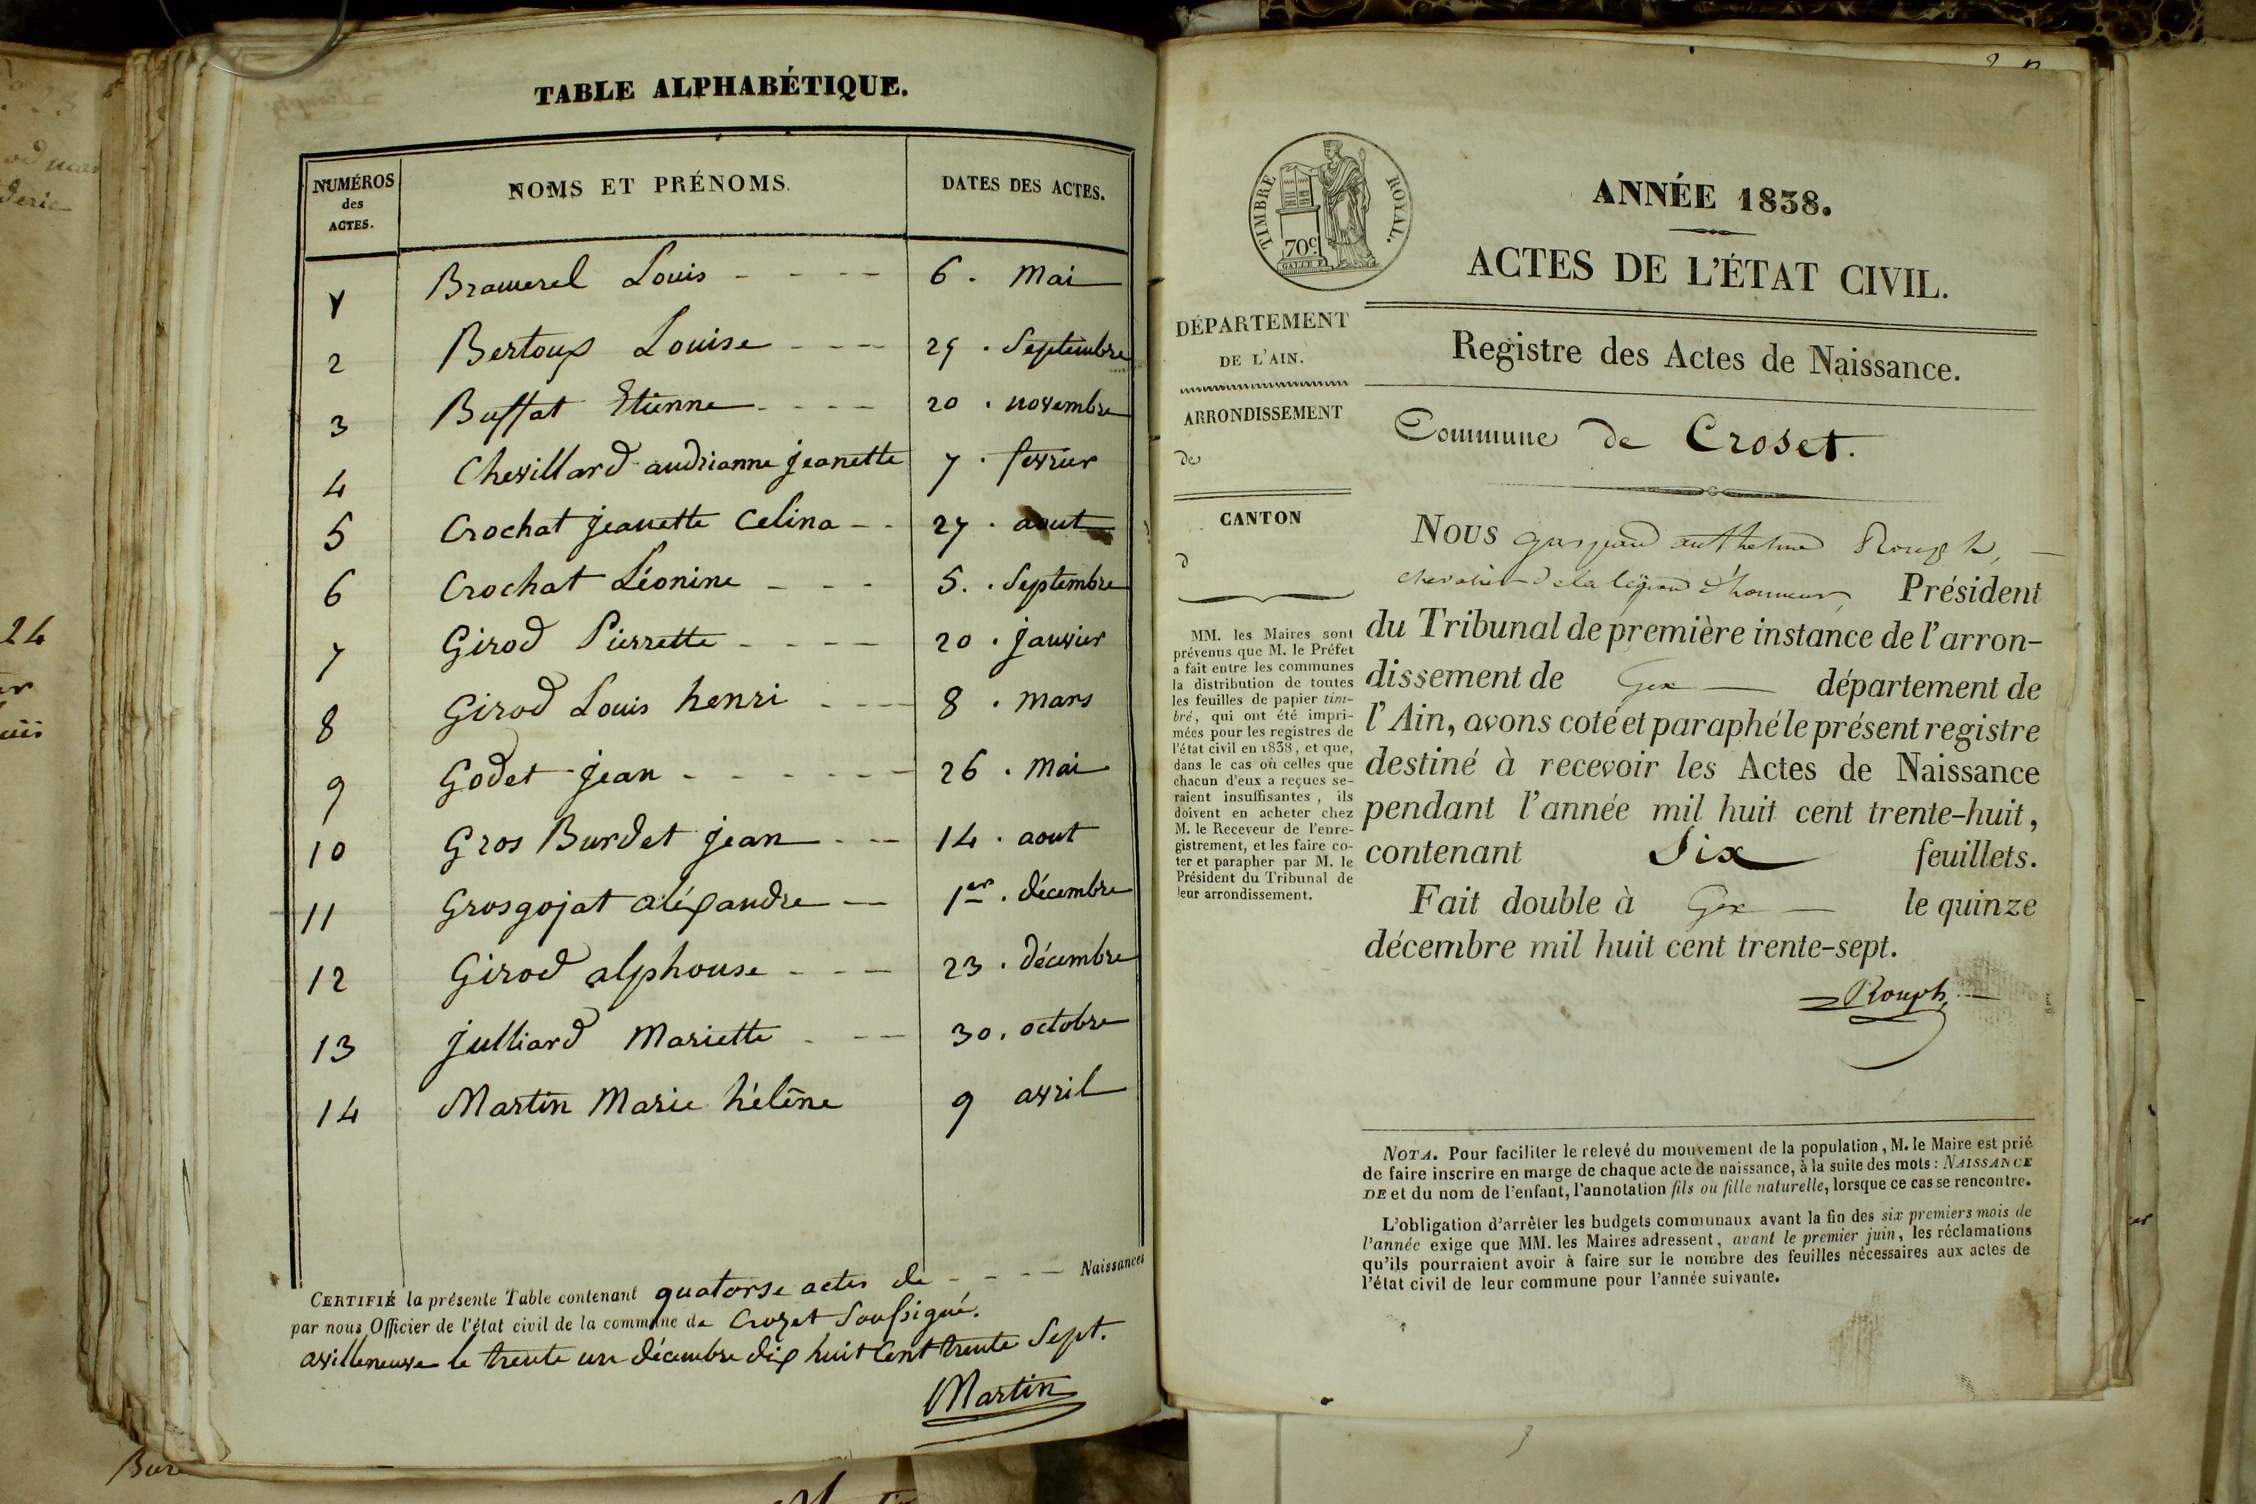 TABLE ALPHABÉTIQUE.
NUMÉROS des ACTES. NOMS ET PRÉNOMS. DATES DES ACTES.
1 Bramerel Louis - - - - 6 . Mai
2 Bertoux Louise - - - 29 . Septembre
3 Buffat Etienne - - - - 20 . novembre
4 Chevillard andrianne jeanette 7 . fevrier
5 Crochat jeanette Celina - - 27 . aout
6 Crochat Léonine - - - 5. . Septembre
7 Girod Pierrette - - - - 20 . janvier
8 Girod Louis henri - - - 8 . mars
9 Godet jean - - - - - - 26 . Mai
10 Gros Burdet jean - - - 14 . aout
11 Grosgojat aléxandre — 1er . décembre
12 Girod alphonse - - - 23 . décembre
13 julliard Mariette - - - 30 . octobre
14 Martin Marie hélène 9 avril
CERTIFIÉ la présente Table contenant quatorse actes de - - - — Naissances
par nous, Officier de l'état civil de la commune de Crozet Soussigné.
avilleneuve le trente un décembre dix huit Cent trente Sept.
Martin
TIMBRE ROYAL.
70c.
ANNÉE 1838.
ACTES DE L'ÉTAT CIVIL.
DÉPARTEMENT
DE L'AIN.
ARRONDISSEMENT
de
CANTON
d
MM. les Maires sont
prévenus que M. le Préfet
a fait entre les communes
la distribution de toutes
les feuilles de papier tim-
bré, qui ont été impri-
mées pour les registres de
l'état civil en 1838, et que,
dans le cas où celles que
chacun d'eux a reçues se-
raient insuffisantes, ils
doivent en acheter chez
M. le Receveur de l'enre-
gistrement, et les faire co-
ter et parapher par M. le
Président du Tribunal de
leur arrondissement.
Registre des Actes de Naissance.
Commune de Croset.
NOUS gaspard anthelme Rouph, —
chevalier de la légion d'honneur, Président
du Tribunal de première instance de l'arron-
dissement de Gex — département de
l'Ain, avons coté et paraphé le présent registre
destiné à recevoir les Actes de Naissance
pendant l'année mil huit cent trente-huit,
contenant Six feuillets.
Fait double à Gex — le quinze
décembre mil huit cent trente-sept.
Rouph
NOTA. Pour faciliter le relevé du mouvement de la population, M. le Maire est prié
de faire inscrire en marge de chaque acte de naissance, à la suite des mots : NAISSANCE
DE et du nom de l'enfant, l'annotation fils ou fille naturelle, lorsque ce cas se rencontre.
L'obligation d'arrêter les budgets communaux avant la fin des six premiers mois de
l'année exige que MM. les Maires adressent, avant le premier juin, les réclamations
qu'ils pourraient avoir à faire sur le nombre des feuilles nécessaires aux actes de
l'état civil de leur commune pour l'année suivante.